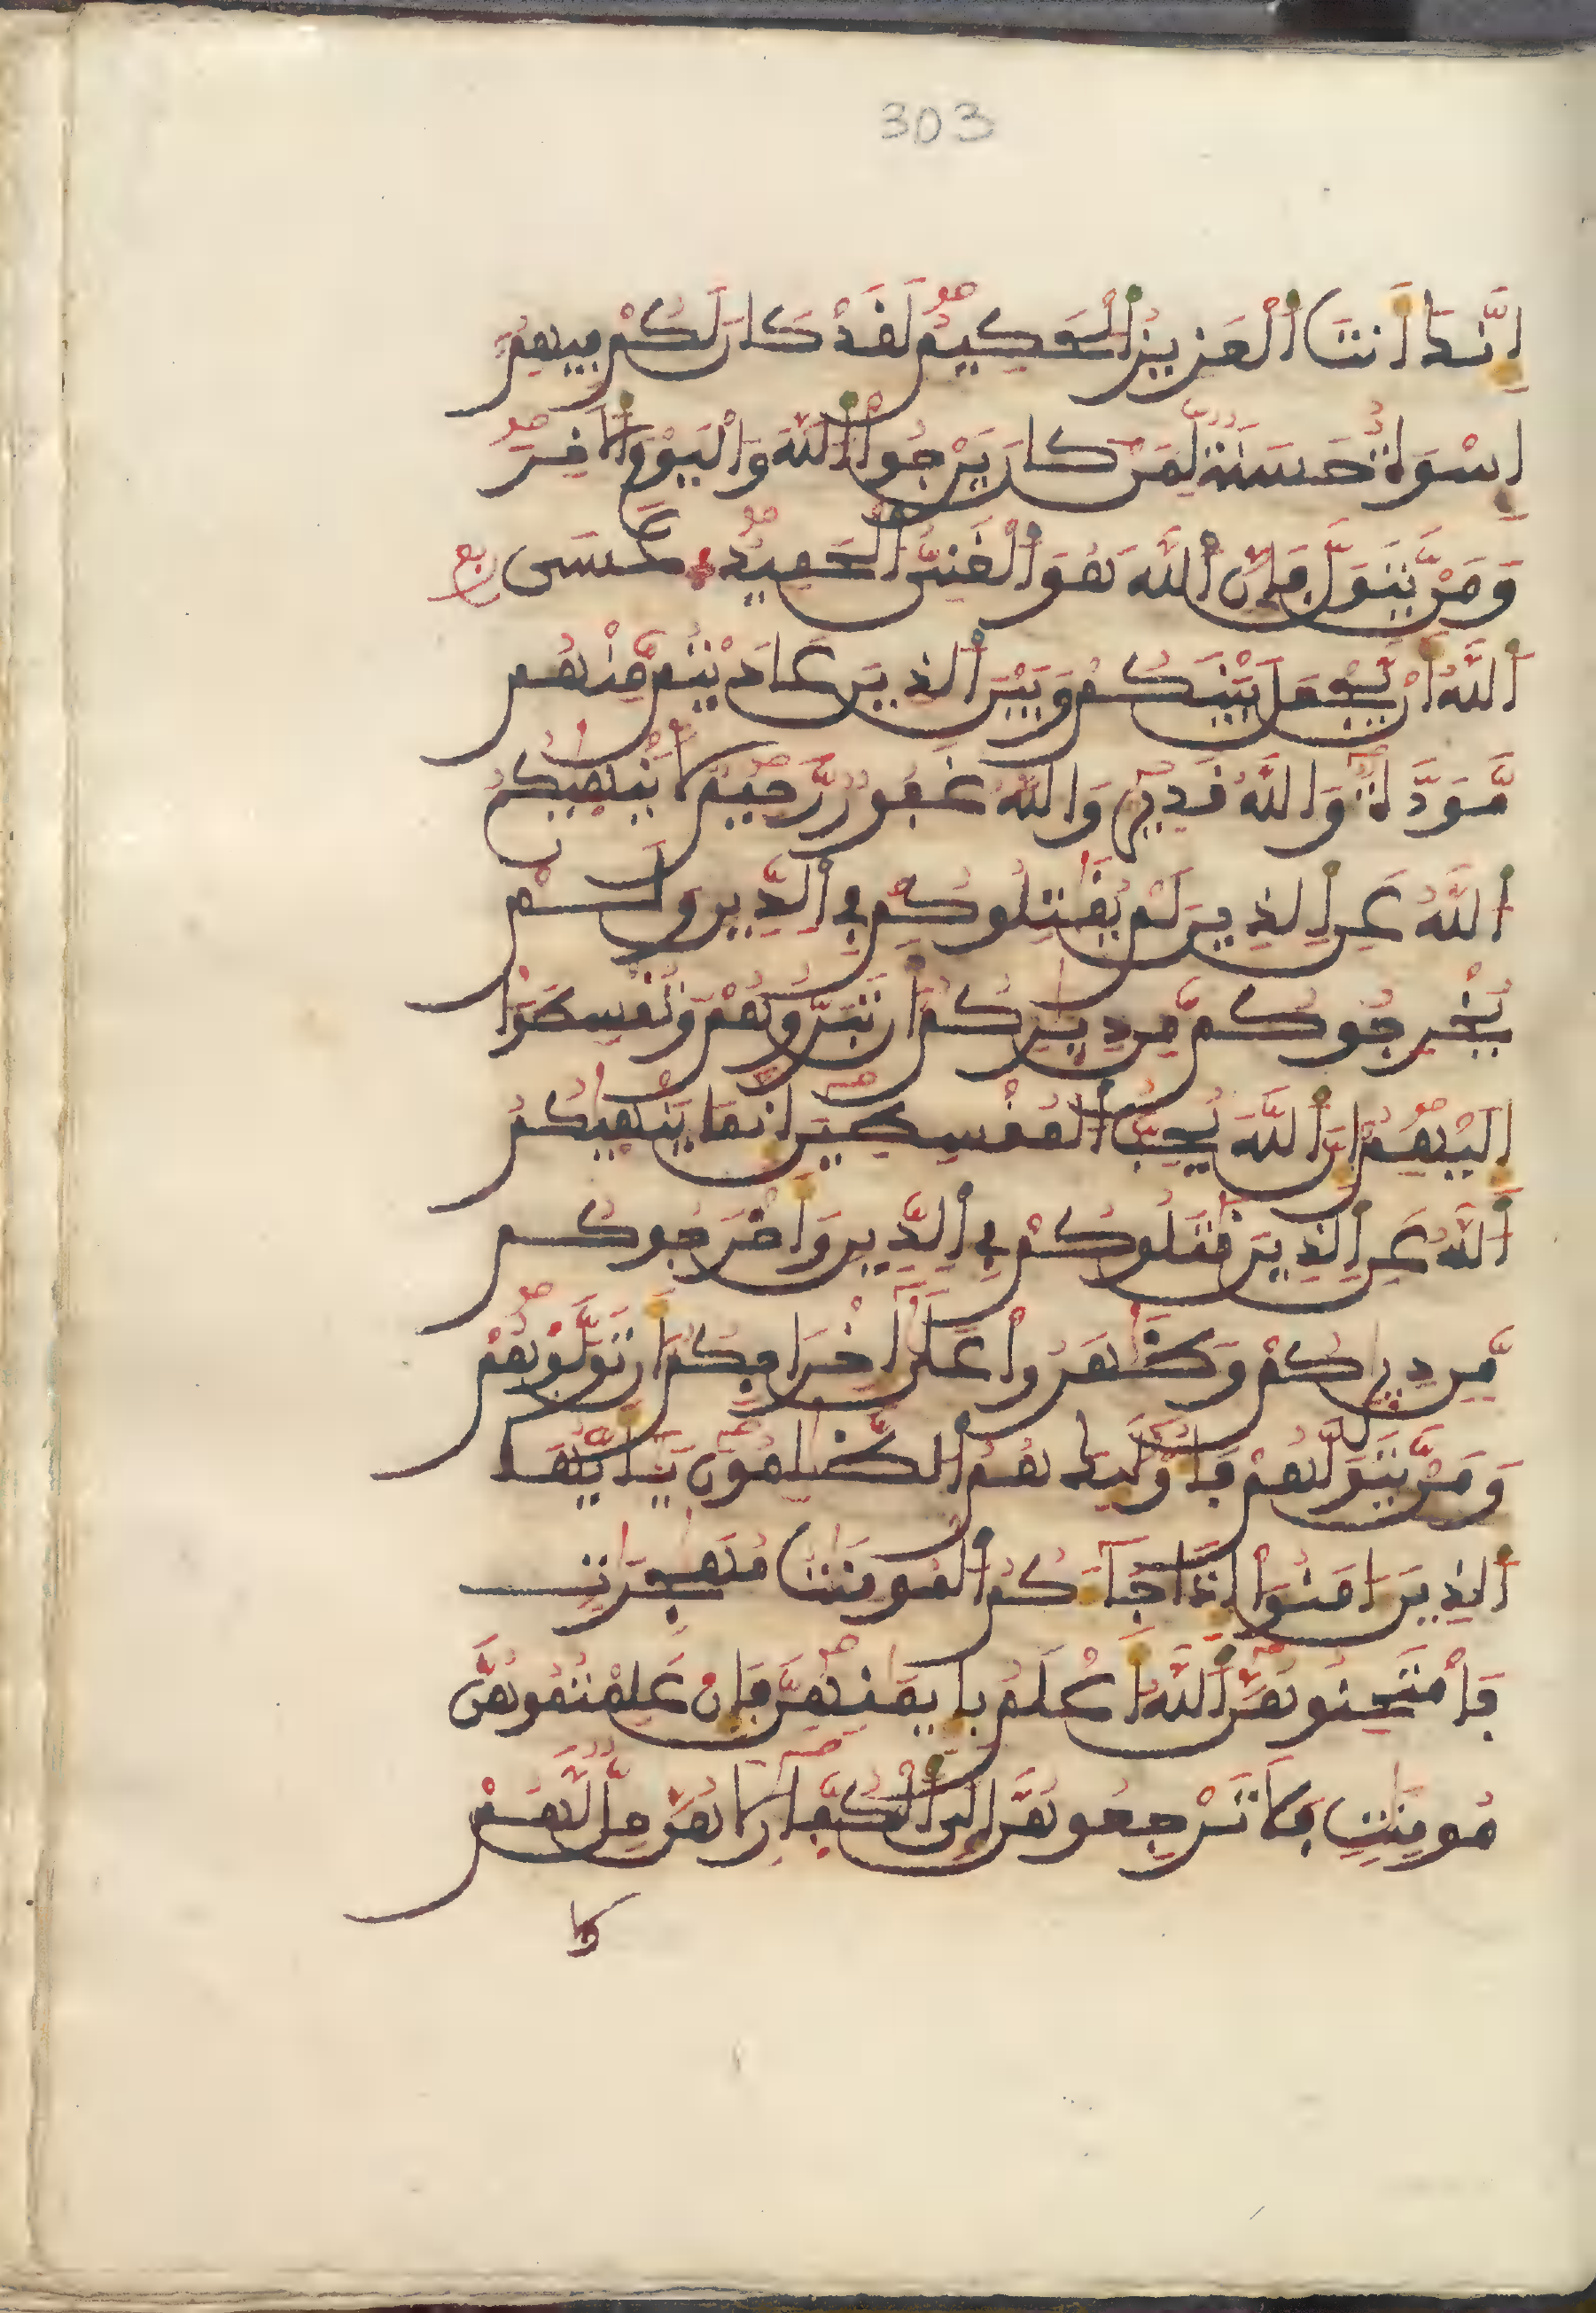 303
إِنَّكَ أَنتَ اَ۬لْعَزِيزُ اَ۬لْحَكِيمُ لَقَدْ كَانَ لَكُمْ فِيهِمُۥ
إِسْوَةٌ حَسَنَةٌ لِّمَن كَانَ يَرْجُواْ اُ۬للَّهَ وَالْيَوْمَ اَ۬لَاخِرَ
وَمَنْ يَّتَوَلَّ فَإِنَّ اَ۬للَّهَ هُوَ اَ۬لْغَنِيُّ اُ۬لْحَمِيدُ عَسَى
اَ۬للَّهُ أَنْ يَّجْعَلَ بَيْنَكُمْ وَبَيْنَ اَ۬لذِينَ عَادَيْتُم مِّنْهُم
مَّوَدَّةٗ وَاللَّهُ قَدِيرٞ وَاللَّهُ غَفُورٞ رَّحِيمٞ لَّا يَنْهَيٰكُمُ
اُ۬للَّهُ عَنِ اِ۬لذِينَ لَمْ يُقَٰتِلُوكُمْ فِے اِ۬لدِّينِ وَلَمْ
يُخْرِجُوكُم مِّن دِيٰرِكُمُۥ أَن تَبَرُّوهُمْ وَتُقْسِطُوٓاْ
إِلَيْهِمُۥ إِنَّ اَ۬للَّهَ يُحِبُّ اُ۬لْمُقْسِطِينَ إِنَّمَا يَنْهَيٰكُمُ
اُ۬للَّهُ عَنِ اِ۬لذِينَ قَٰتَلُوكُمْ فِے اِ۬لدِّينِ وَأَخْرَجُوكُم
مِّن دِيٰرِكُمْ وَظَٰهَرُواْ عَلَىٰٓ إِخْرَاجِكُمُۥ أَن تَوَلَّوْهُمْ
وَمَنْ يَّتَوَلَّهُمْ فَأُوْلَٰٓئِكَ هُمُ اُ۬لظَّٰلِمُونَ يَٰٓأَيُّهَا
اَ۬لذِينَ ءَامَنُوٓاْ إِذَا جَآءَكُمُ اُ۬لْمُومِنَٰتُ مُهَٰجِرَٰتٖ
فَامْتَحِنُوهُنَّ اَ۬للَّهُ أَعْلَمُ بِإِيمَٰنِهِنَّ فَإِنْ عَلِمْتُمُوهُنَّ
مُومِنَٰتٖ فَلَا تَرْجِعُوهُنَّ إِلَى اَ۬لْكُفَّارِ لَا هُنَّ حِلّٞ لَّهُمْ
ولا